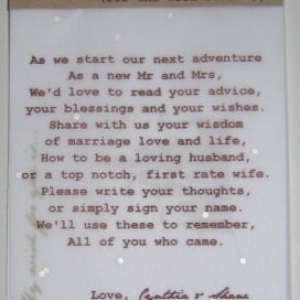 As we start our next adventure
As a new Mr and Mrs,
We'd love to read your advice,
your blessings and your wishes.
Share with us your wisdom
of marriage love and life,
How to be a loving husband,
or a top notch, first rate wife.
Please write your thoughts,
or simply sign your name.
We'll use these to remember,
All of you who came.
Love, Cynthia & Shane